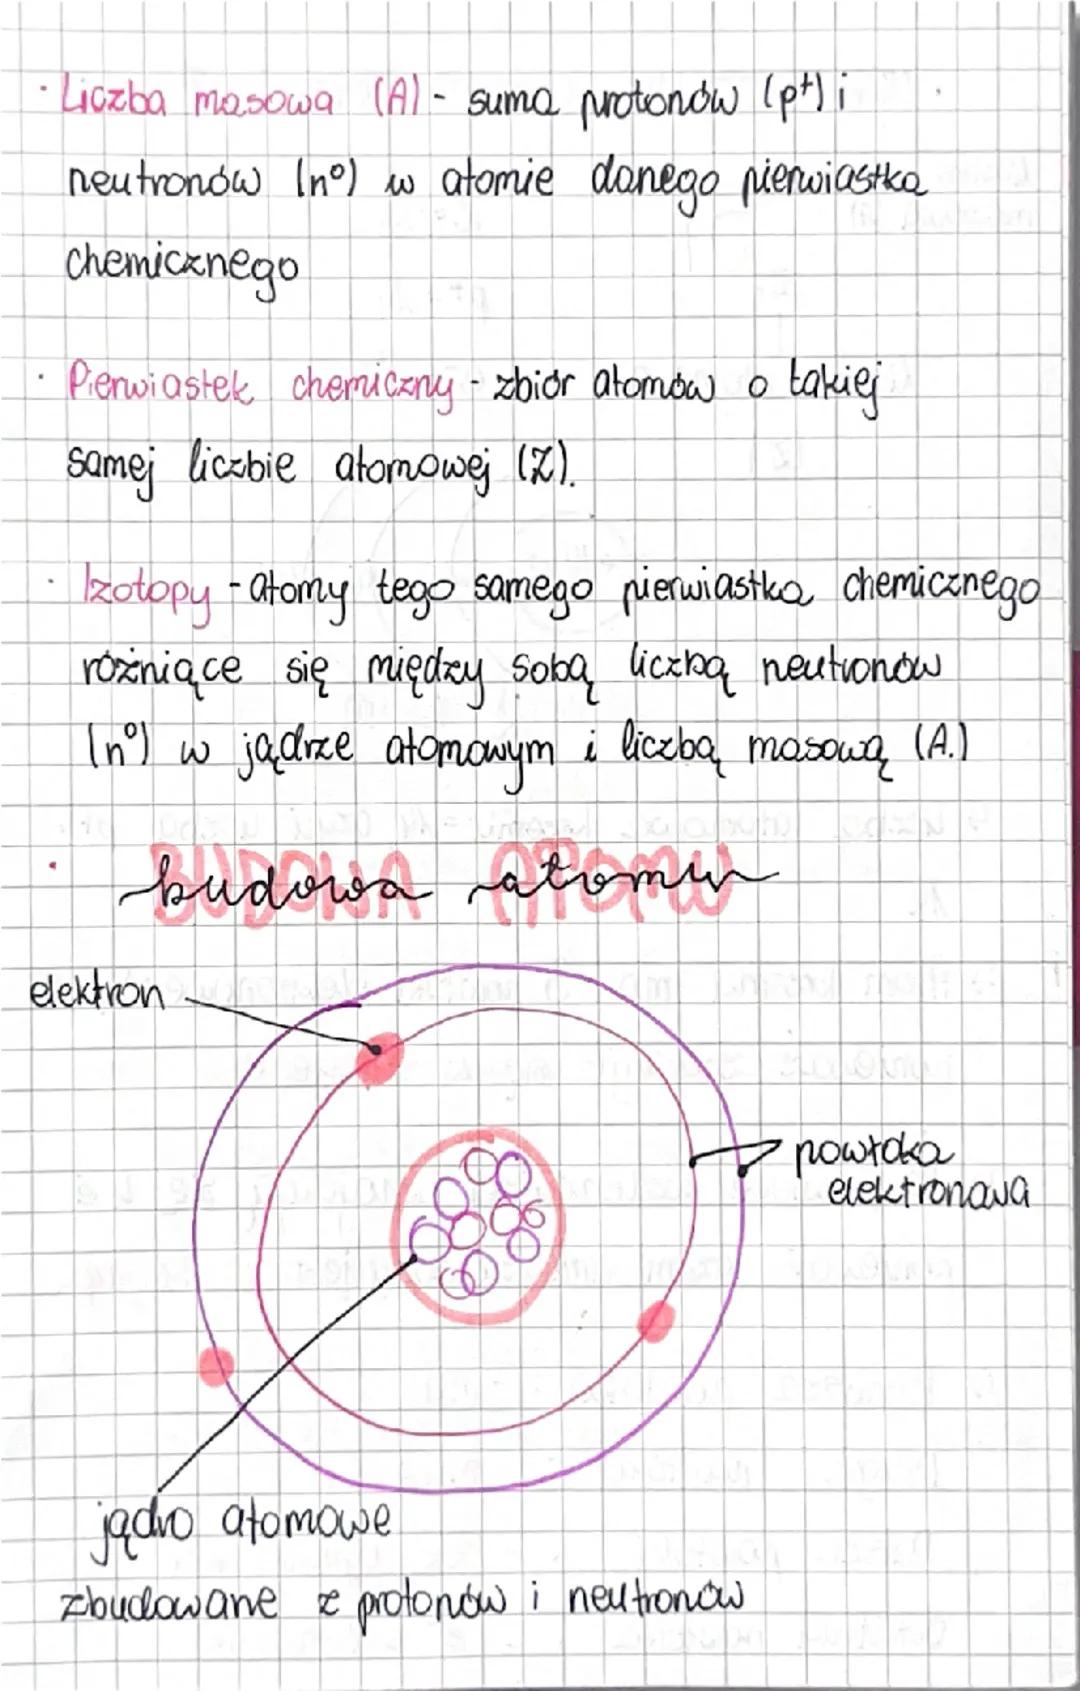 · Liczba masowa (A) - suma protonów (p⁺) i
neutronów (n⁰) w atomie danego pierwiastka
chemicznego
· Pierwiastek chemiczny - zbiór atomów o takiej
samej liczbie atomowej (Z).
· Izotopy - atomy tego samego pierwiastka chemicznego
różniące się między sobą liczbą neutronów
(n⁰) w jądrze atomowym i liczbą masową (A.)
· budowa atomu
BUDOWA ATOMU
elektron
powłoka
elektronowa
jądro atomowe
zbudowane z protonów i neutronów